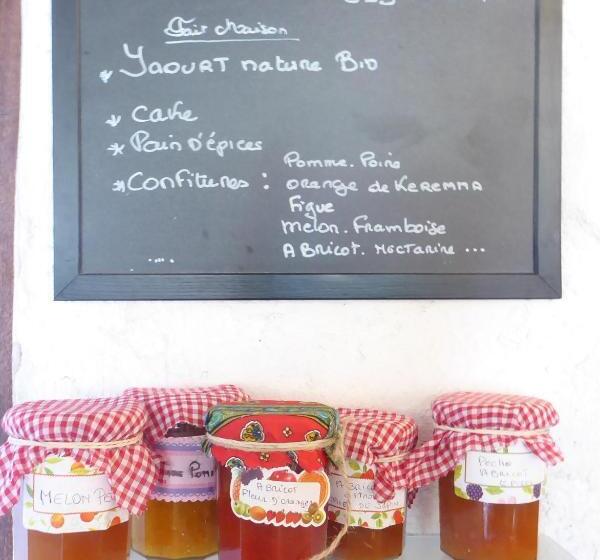 Fait Maison
* YAOURT nature BIO
* cake
* Pain D'épices
* Confitures : Pomme. Poire
orange de KEREMMA
Figue
Melon. Framboise
ABRICOT. NECTARINE ...
....
MELON
ABRICOT
Fleur d'oranger
Pêche
ABRICOT